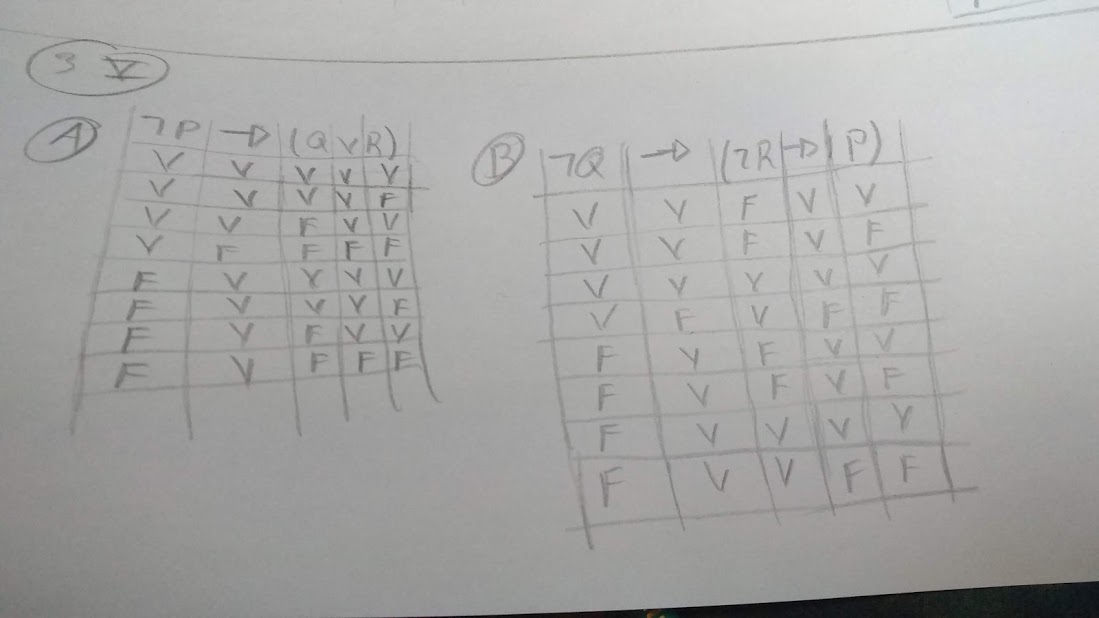 3 V
A
¬P → (Q ∨ R)
V V V V V
V V V V F
V V F V V
V F F F F
F V V V V
F V V V F
F V F V V
F V F F F
B
¬Q → (¬R → P)
V V F V V
V V F V F
V V V V V
V F V F F
F V F V V
F V F V F
F V V V V
F V V F F